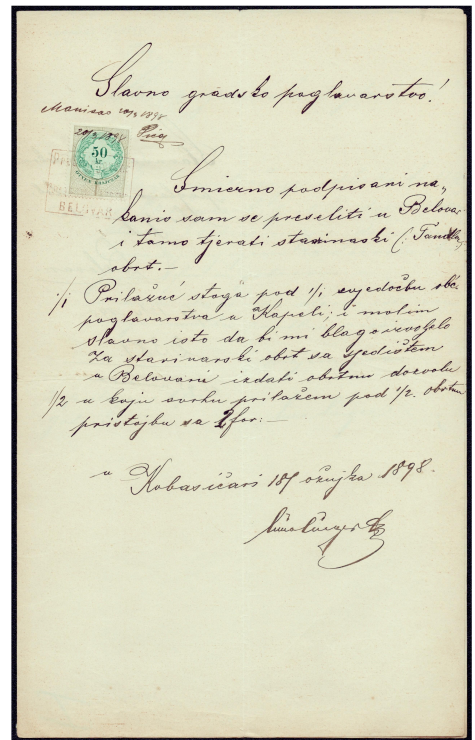 Slavno gradsko poglavarstvo!
20/3 1898
20/3 1898
50
kr
BELOVAR
Smierno podpisani na„
kanio sam se preseliti u Belovar
i tamo tjerati starinarski (: Tandler
obrt.—
1/1 Prilažuć stoga pod 1/1 svjedočbu obć.
poglavarstva u Kapeli; i molim
slavno isto da bi mi blagoizvolilo
za starinarski obrt sa sjedištem
u Belovaru izdati obrtnu dozvolu
1/2 u koju svrhu prilažem pod 1/2. obrtnu
pristojbu sa 2 for:—
u Kobasičari 18/ ožujka 1898.